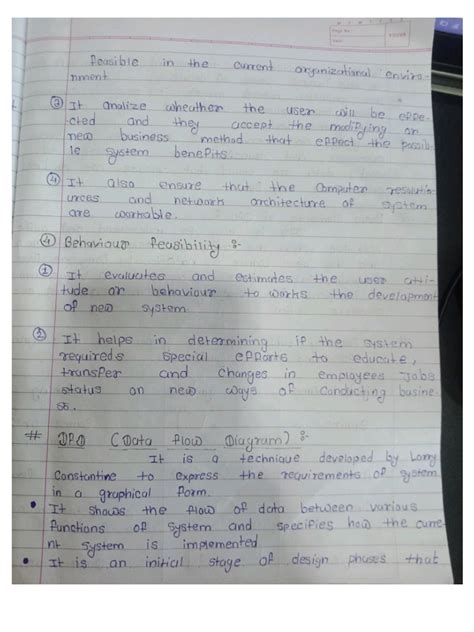 feasible in the current organizational enviro-
nment.
③ It analize wheather the user will be effe-
cted and they accept the modifying or
new business method that effect the possib-
le system benefits.
④ It also ensure that the computer resoutio-
urces and network architecture of system
are workable.
④ Behaviour feasibility :-
① It evaluates and estimates the user atti-
tude or behaviour to works the development
of new system
② It helps in determining if the system
requireds special efforts to educate,
transfer and changes in employees Jobs
status on new ways of conducting busine-
ss.
# DFD (Data flow Diagram) :-
It is a technique developed by Larry
Constantine to express the requirements of system
in a graphical form.
• It shows the flow of data between various
functions of system and specifies how the curre-
nt system is implemented
• It is an initial stage of design phases that